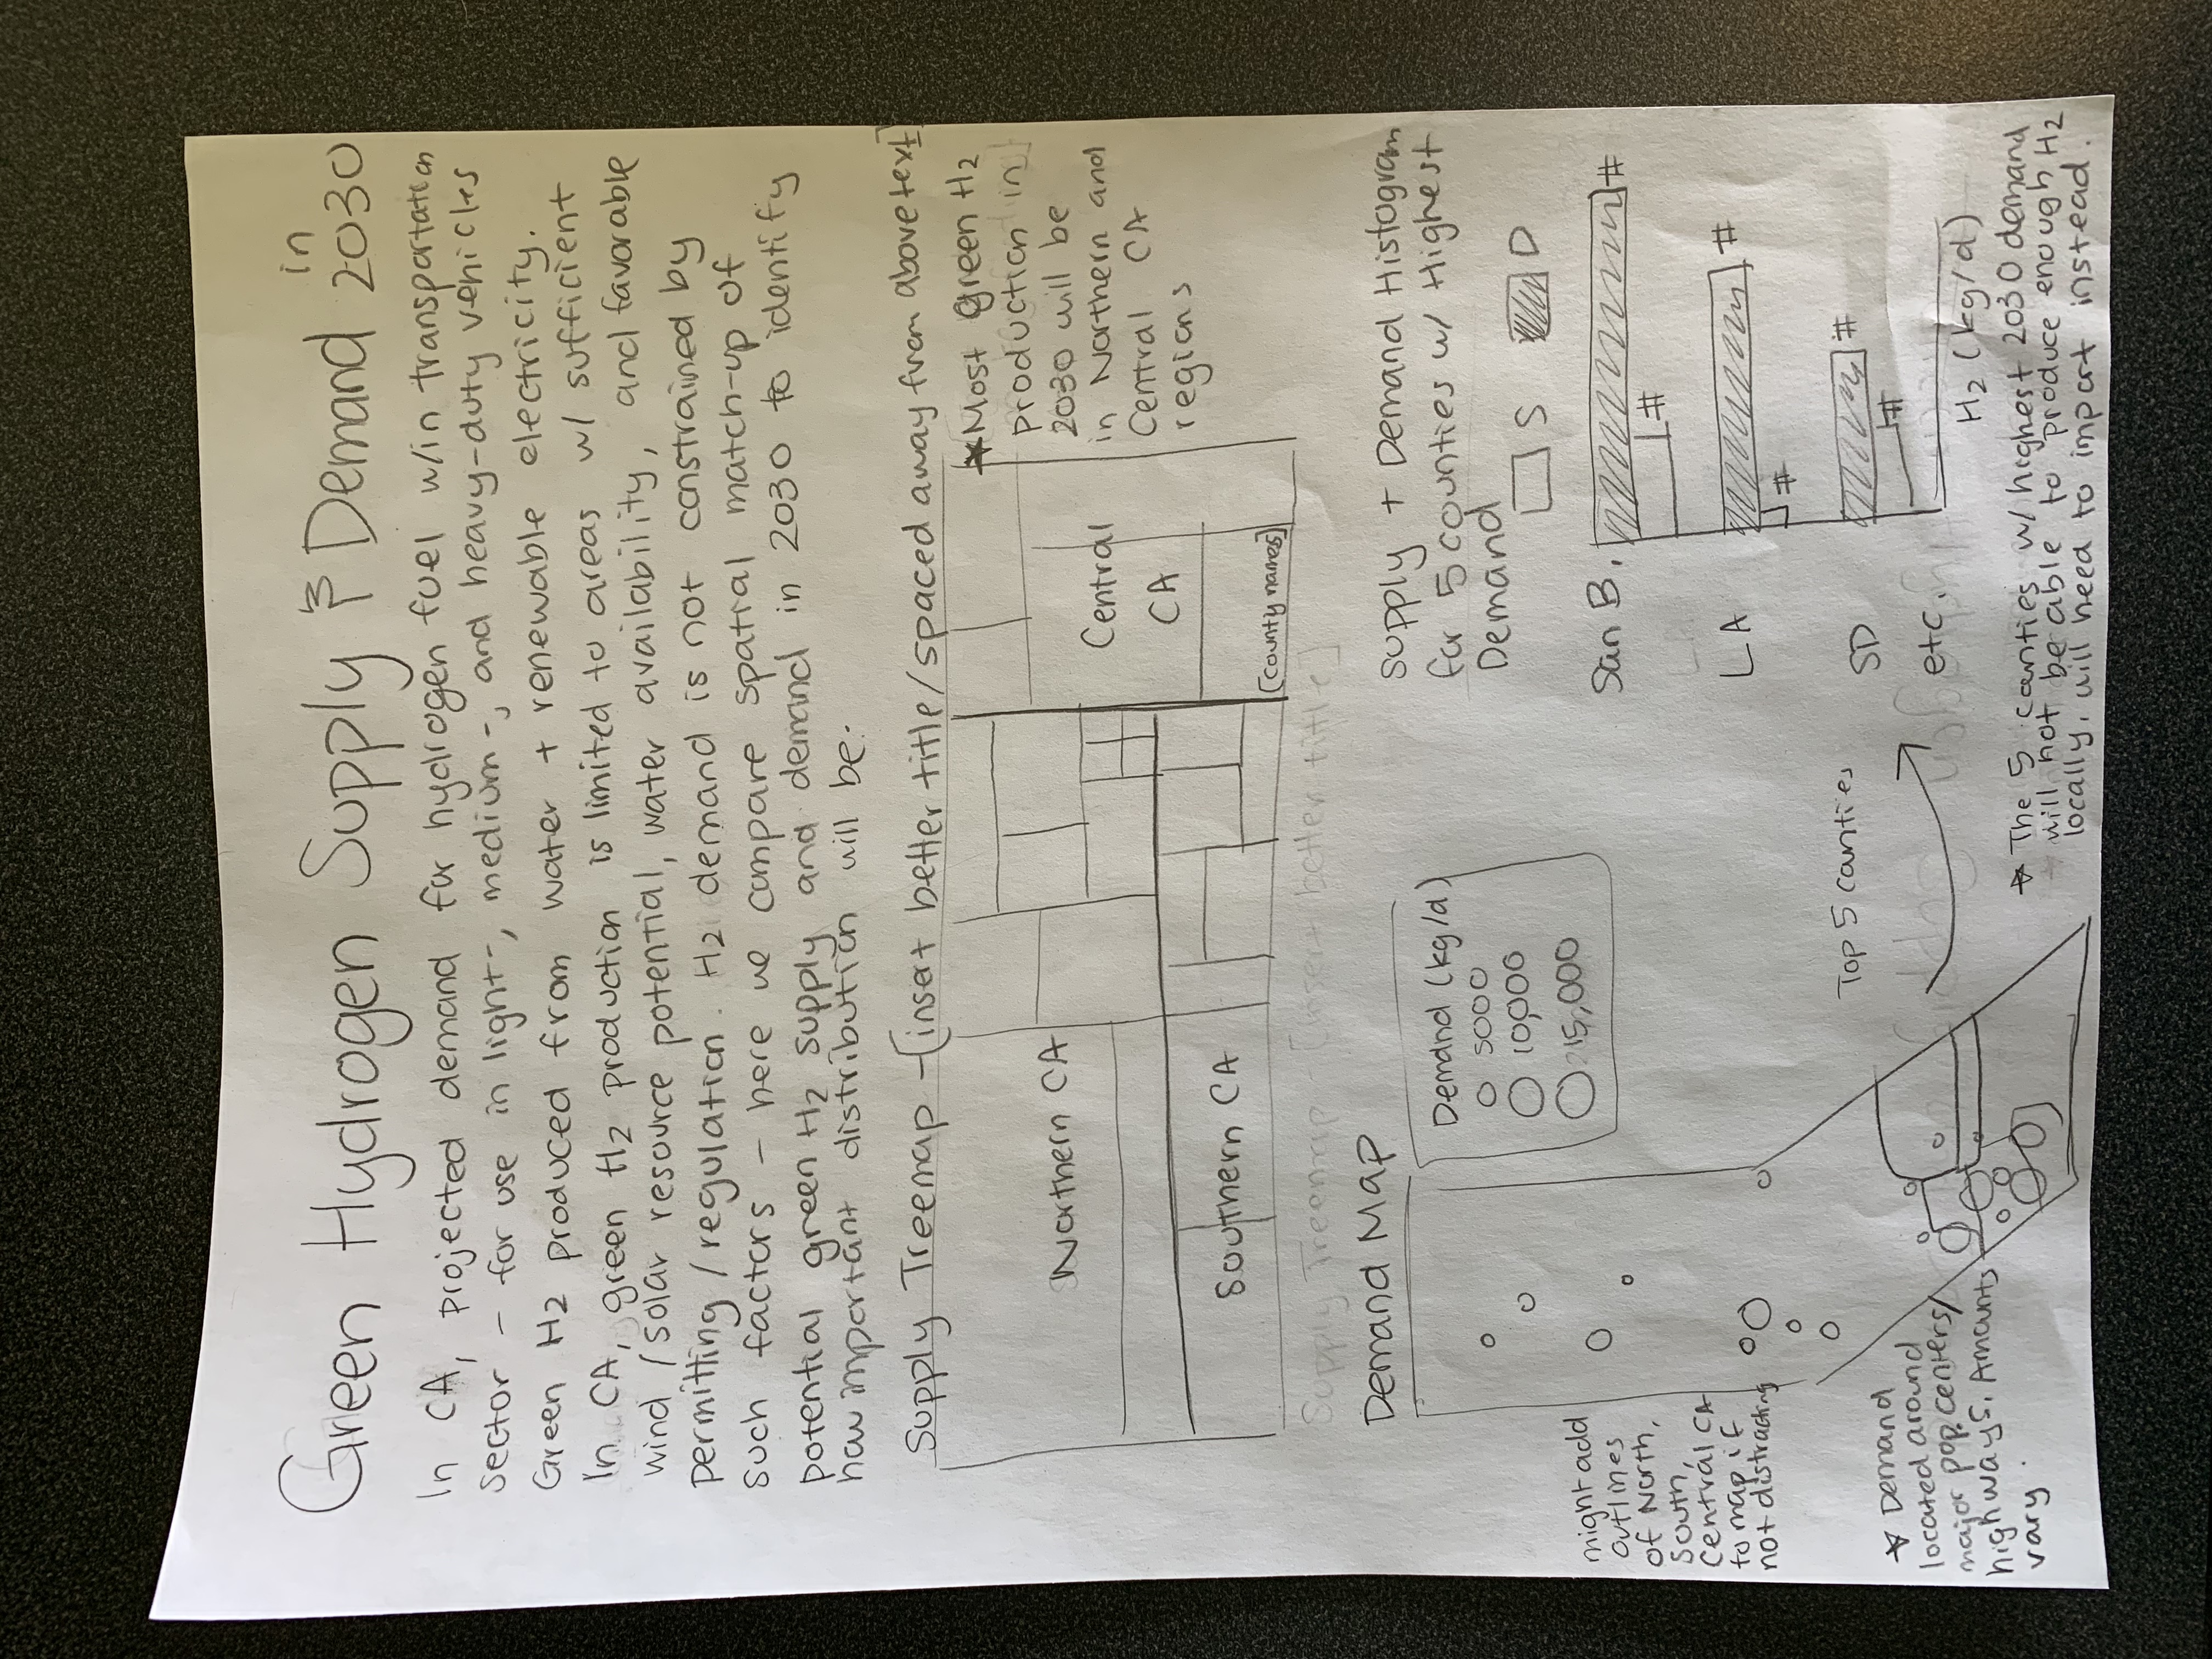 Green Hydrogen Supply & Demand in 2030
In CA, projected demand for hydrogen fuel w/in transportation
sector – for use in light-, medium-, and heavy-duty vehicles
Green H2 produced from water + renewable electricity.
In CA, green H2 production is limited to areas w/ sufficient
wind / solar resource potential, water availability, and favorable
permitting / regulation. H2 demand is not constrained by
such factors – here we compare spatial match-up of
potential green H2 supply and demand in 2030 to identify
how important distribution will be.
Supply Treemap – [insert better title/spaced away from above text]
Northern CA
Southern CA
Central
CA
[county names]
★ Most green H2
production in
2030 will be
in Northern and
Central CA
regions
Supply Treemap - [insert better title]
Demand Map
Demand (kg/d)
5000
10,000
15,000
might add
outlines
of North,
South,
Central CA
to map if
not distracting
★ Demand
located around
major pop. centers/
highways. Amounts
vary.
Top 5 counties
Supply + Demand Histogram
for 5 counties w/ Highest
Demand
S D
San B. #
#
LA #
#
SD #
#
etc.
H2 (kg/d)
★ The 5 counties w/ highest 2030 demand
will not be able to produce enough H2
locally, will need to import instead.